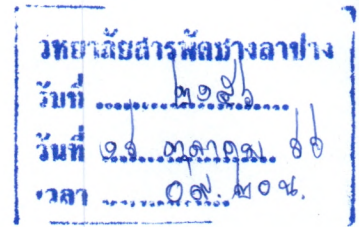 วิทยาลัยสารพัดช่างลำปาง
รับที่ ๒๑๕๖
วันที่ ๑๘ ตุลาคม ๖๖
เวลา ๐๙.๒๐น.